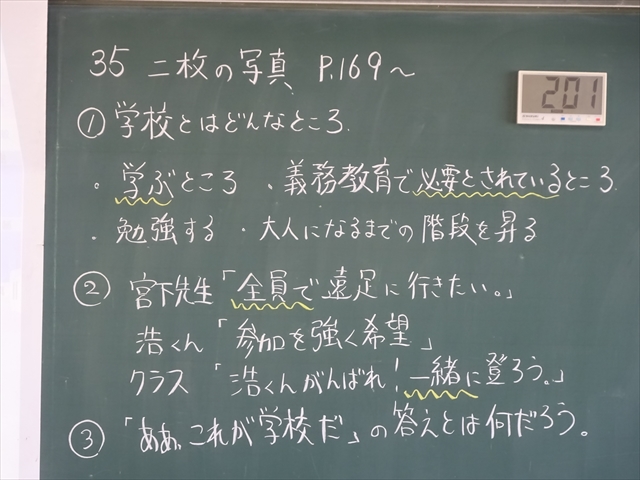 35 二枚の写真 P.169〜
201
①学校とはどんなところ.
・学ぶところ ・義務教育で必要とされているところ
・勉強する ・大人になるまでの階段を昇る
② 宮下先生「全員で遠足に行きたい。」
浩くん「参加を強く希望」
クラス「浩くんがんばれ!一緒に登ろう。」
③「ああ、これが学校だ」の答えとは何だろう。